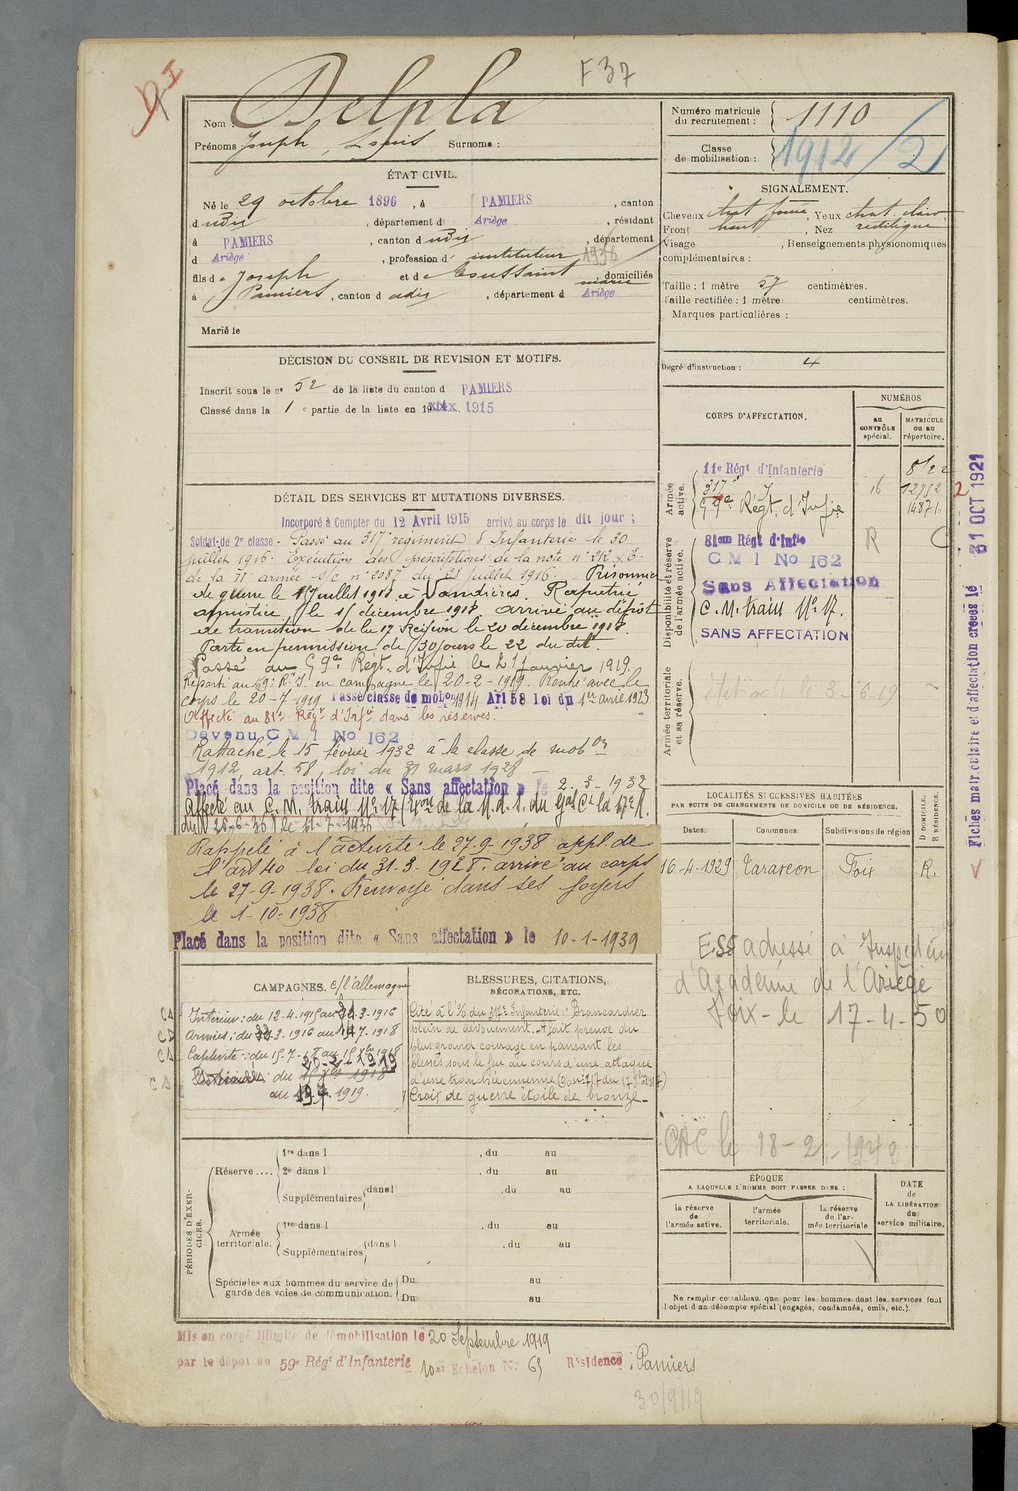 F 37
Nom : Delpla
Prénoms Joseph, Louis Surnoms :
Numéro matricule du recrutement : 1110
Classe de mobilisation : 1912/2
ÉTAT CIVIL.
Né le 29 octobre 1896, à PAMIERS, canton
d udis, département d Ariège, résidant
à PAMIERS, canton d udis, département
d Ariège, profession d' instituteur 1936
fils de Joseph et de Toussaint marie, domiciliés
à Pamiers, canton d udis, département d Ariège
Marié le
SIGNALEMENT.
Cheveux chat foncé, Yeux chat. clair
Front haut, Nez rectiligne
Visage , Renseignements physionomiques
complémentaires :
Taille : 1 mètre 57 centimètres.
Taille rectifiée : 1 mètre centimètres.
Marques particulières :
Degré d'instruction : 4
DÉCISION DU CONSEIL DE REVISION ET MOTIFS.
Inscrit sous le nº 52 de la liste du canton d PAMIERS
Classé dans la 1e partie de la liste en 1915
CORPS D'AFFECTATION.
NUMÉROS
au CONTRÔLE spécial.
MATRICULE ou au répertoire.
Armée active.
11e Régt d'Infanterie
317e
59e Régt d'Infie
16
12752
14871
Disponibilité et réserve de l'armée active.
81eme Régt d'Infie
R C
C M I No 162
Sans Affectation
C. M. train Nº 17.
SANS AFFECTATION
Armée territoriale et sa réserve.
Fiches matriculaire et d'affectation créées le 31 OCT 1921
DÉTAIL DES SERVICES ET MUTATIONS DIVERSES.
Incorporé à Compter du 12 Avril 1915 arrivé au corps le dit jour ;
Soldat de 2e classe. Passé au 317e régiment d'Infanterie le 30
juillet 1916. Exécution des prescriptions de la note nº
de la IIe armée S/C nº 2087 du 28 juillet 1916. Prisonnier
de guerre le 15 juillet 1918 à Vandières. Rapatrié
armistice le 15 décembre 1918 arrivé au dépôt
de transition de la 17 Région le 20 décembre 1918.
Parti en permission de 30 jours le 22 du dit.
Passé au 59e Régt d'Infie le 21 janvier 1919.
Réparti au 59e R.I. en campagne le 20-2-1919. Rentré avec le
corps le 20-7-1919 Passé classe de mobon 1914 Art 58 loi du 1er Avril 1923
Affecté au 81e Régt d'Infie dans les réserves.
Devenu C M I No 162
Rattaché le 15 février 1932 à la classe de mobon
1912, art. 58, loi du 31 mars 1928 —
Placé dans la position dite « Sans affectation » le 2-3-1932
Affecté au C. M. train Nº 17
du 26-6-36) le 11-7-1936
Rappelé à l'activité le 27.9.1938 appl. de
l'art 40 loi du 31-3-1928. arrivé au corps
le 27-9-1938. Renvoyé dans ses foyers
le 1-10-1938
Placé dans la position dite « Sans affectation » le 10-1-1939
LOCALITÉS SUCCESSIVES HABITÉES
PAR SUITE DE CHANGEMENTS DE DOMICILE OU DE RÉSIDENCE.
Dates.
Communes.
Subdivisions de région
D DOMICILE. R RÉSIDENCE.
16-4-1929 Tarascon Foix R.
ESS adressé à Inspection
d'Académie de l'Ariège
Foix - le 17-4-50
CAC le 18-2-1942
CAMPAGNES. c/ l'allemagne
Intérieur : du 12-4-1915 au 31-3-1916
Armées : du 3-1916 au 14-7-1918
Captivité : du 15-7-18 au 15 Xbre 1918
BLESSURES, CITATIONS, DÉCORATIONS, ETC.
Cité à l'O/ du 317e Infanterie : Brancardier
plein de dévouement. A fait preuve du
plus grand courage en pansant les
blessés sous le feu au cours d'une attaque
d'une tranchée ennemie
Croix de guerre étoile de bronze —
PÉRIODES D'EXERCICES.
Réserve....
1re dans l , du au
2e dans l , du au
Supplémentaires dans l , du au
Armée territoriale.
1re dans l , du au
Supplémentaires dans l , du au
Spéciales aux hommes du service de garde des voies de communication.
Du au
Du au
ÉPOQUE
A LAQUELLE L'HOMME DOIT PASSER DANS :
la réserve de l'armée active.
l'armée territoriale.
la réserve de l'armée territoriale
DATE de LA LIBÉRATION du service militaire.
Ne remplir ce tableau que pour les hommes dont les services font
l'objet d'un décompte spécial (engagés, condamnés, omis, etc.).
Mis en congé illimité de démobilisation le 20 Septembre 1919
par le dépôt du 59e Régt d'Infanterie 10e Echelon Nº 69 Résidence : Pamiers
30/9/19